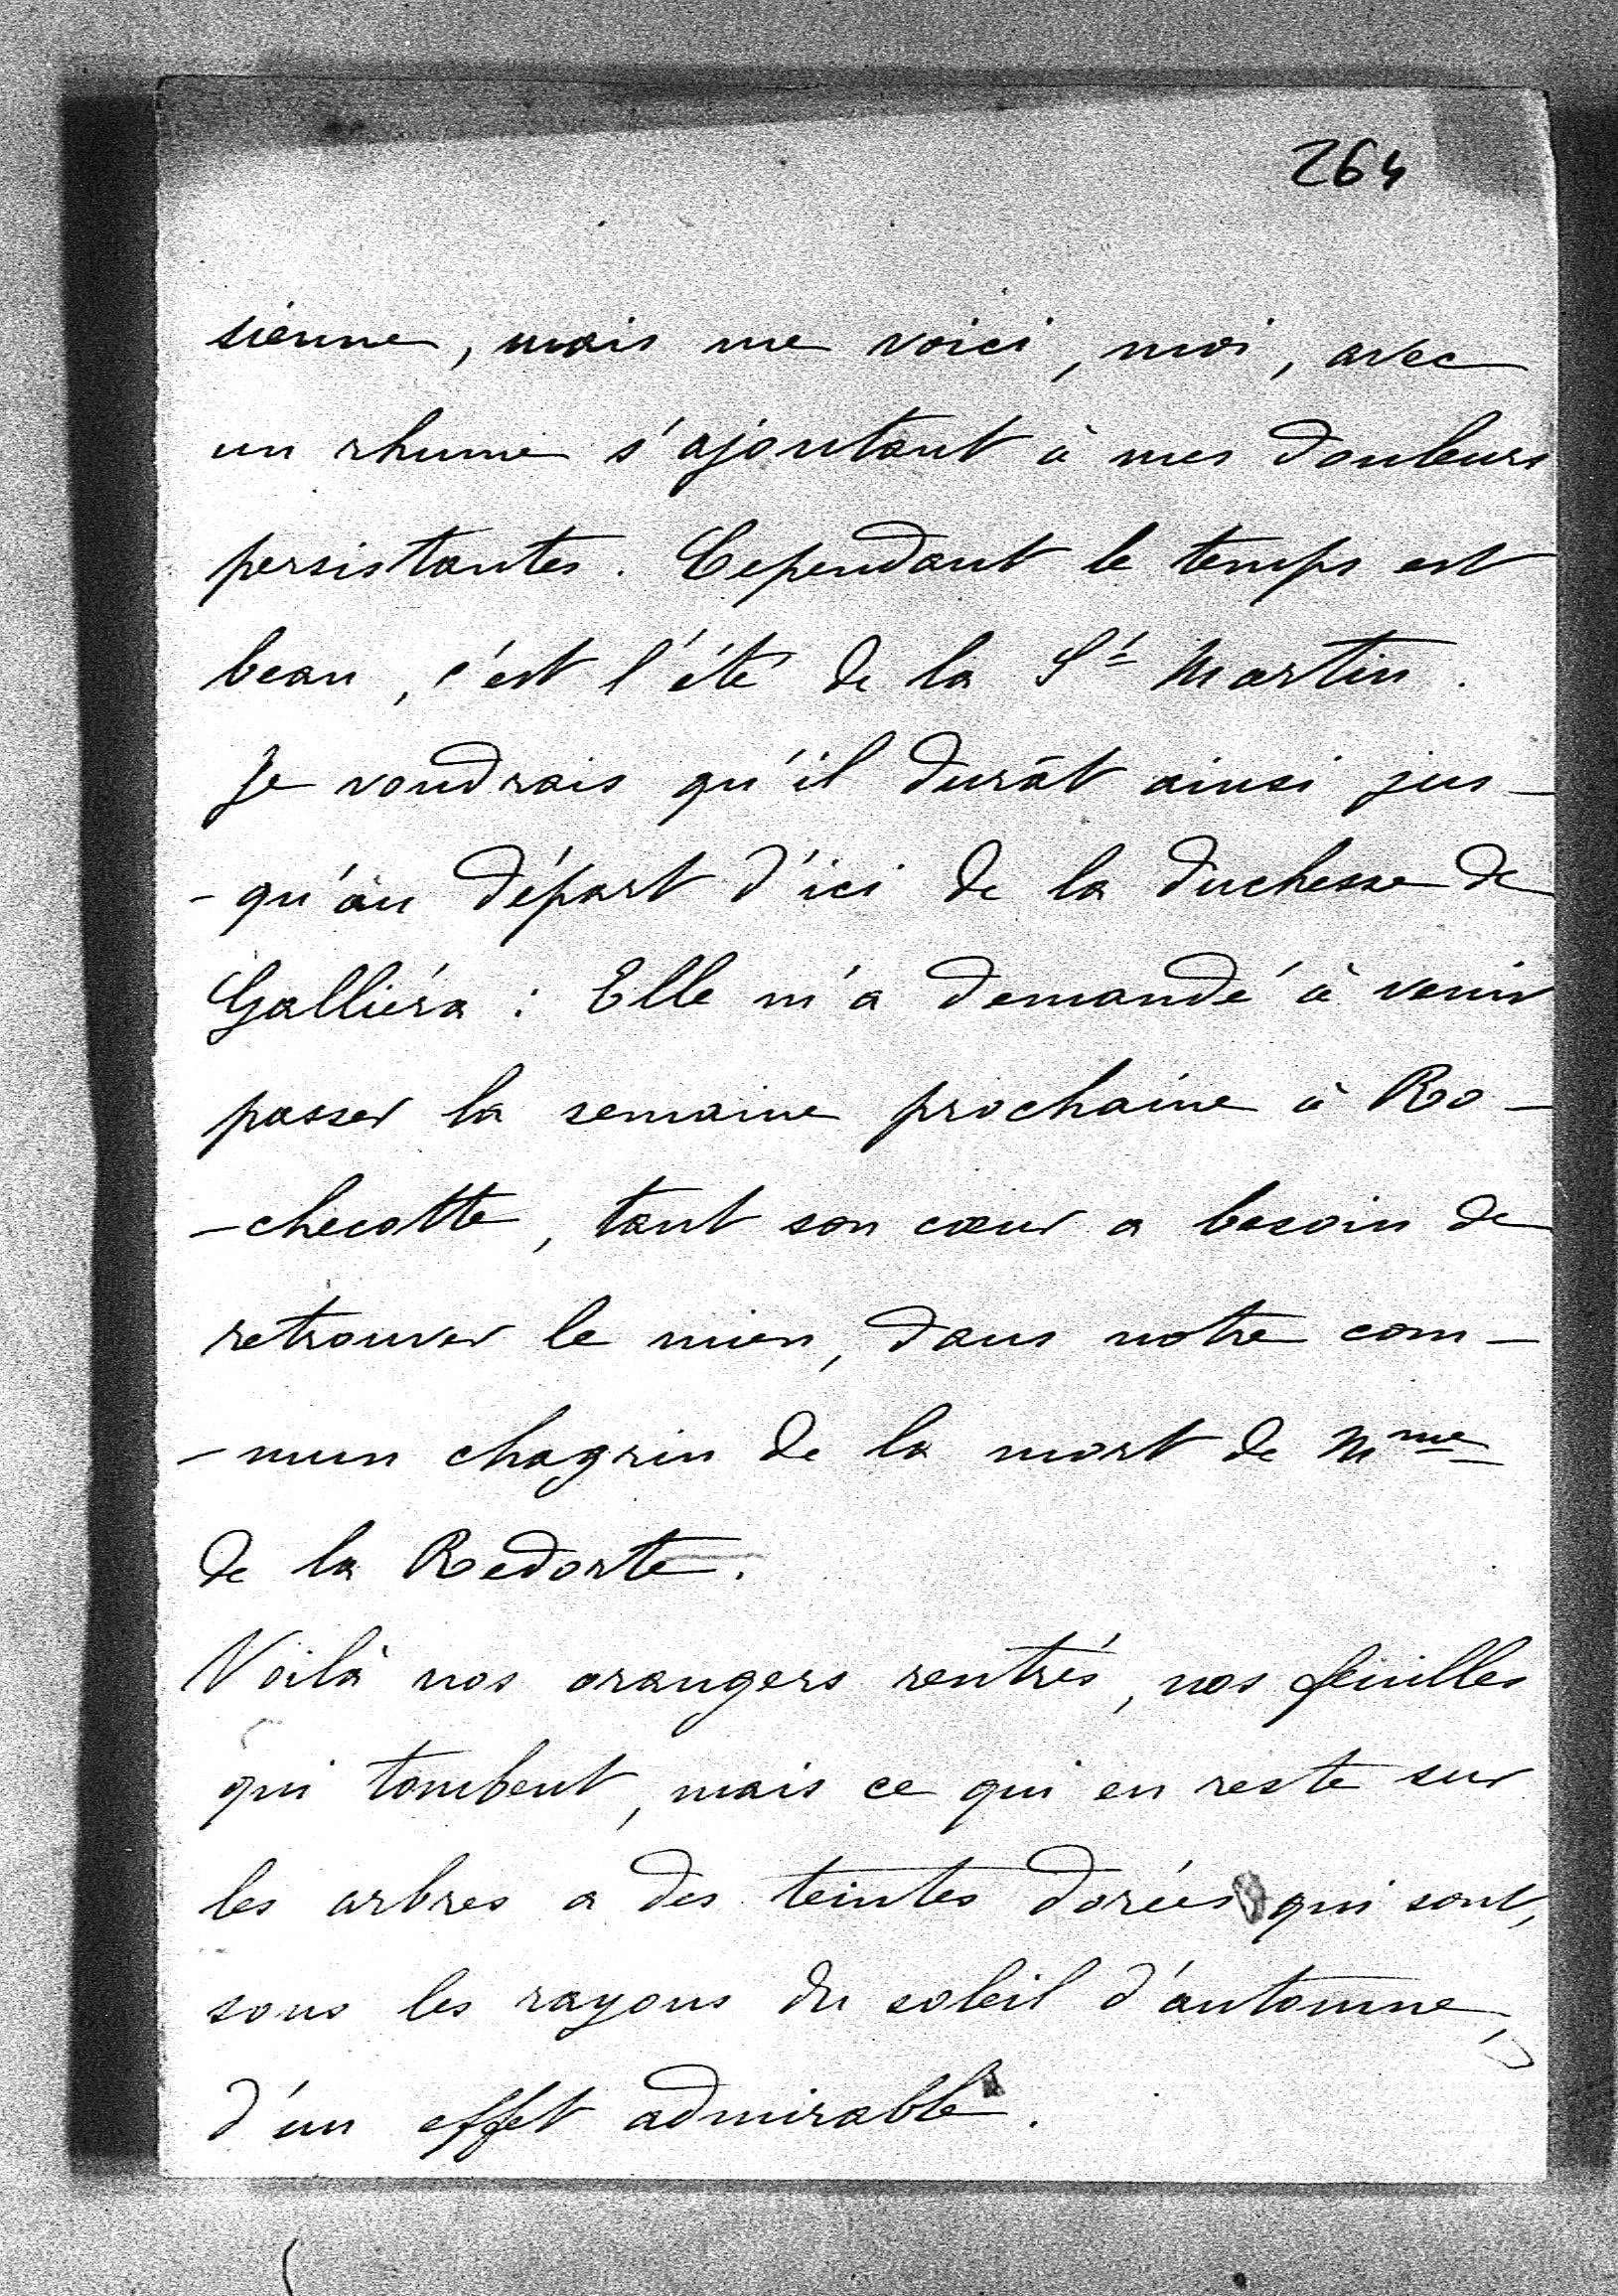 264
sienne, mais me voici, moi, avec
un rhume s'ajoutant à mes douleurs
persistantes. Cependant le temps est
beau, c'est l'été de la St Martin.
Je voudrais qu'il durât ainsi jus-
-qu'au départ d'ici de la duchesse de
Galliéra : Elle m'a demandé à venir
passer la semaine prochaine à Ro-
-checotte, tant son cœur a besoin de
retrouver le mien, dans notre com-
-mun chagrin de la mort de Mme
de la Redorte.
Voilà nos orangers rentrés, nos feuilles
qui tombent, mais ce qui en reste sur
les arbres a des teintes dorées qui sont,
sous les rayons du soleil d'automne,
d'un effet admirable.